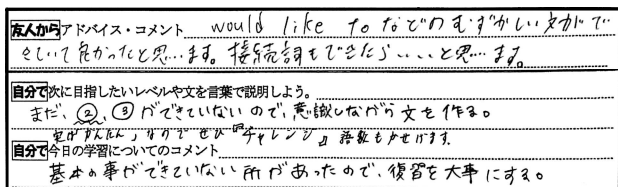 友人から アドバイス・コメント would like toなどのむずかしい文がで
きていて良かったと思います。接続詞もできたらいいと思います。
自分で 次に目指したいレベルや文を言葉で説明しよう。
まだ、②、③ができていないので、意識しながら文を作る。
かんたん」なのでぜひ『チャレンジ』 語数もかせげます。
自分で 今日の学習についてのコメント
基本の事ができていない所があったので、復習を大事にする。